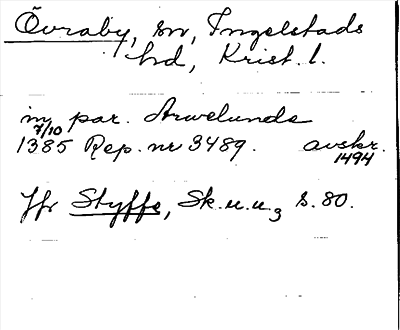 Övraby, sn, Ingelstads
hd, Krist. l.
in par. Arwelunda
7/10
1385 Rep. nr 3489. avskr.
1494
Jfr Styffe, Sk.u.u, s. 80.